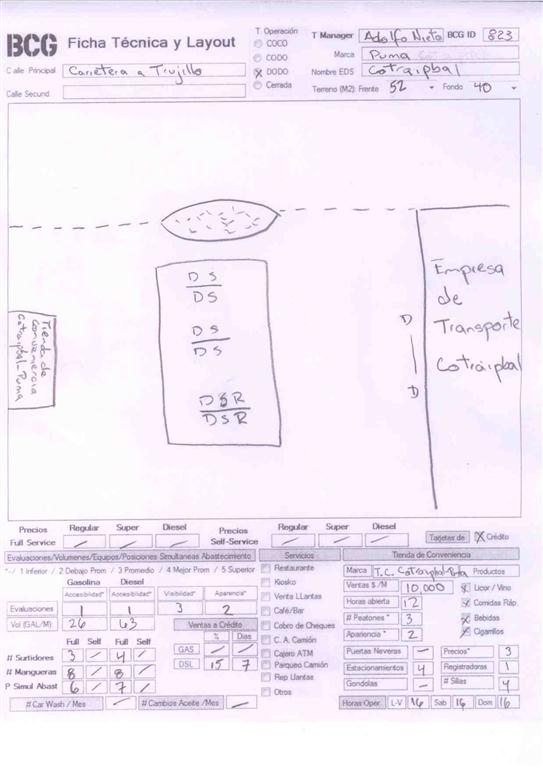 BCG Ficha Técnica y Layout
T. Operación
COCO
CODO
DODO
Cerrada
T Manager Adolfo Nieto BCG ID 823
Marca Puma
Nombre EDS Cotraipbal
Terreno (M2): Frente 52 Fondo 40
Calle Principal Carretera a Trujillo
Calle Secund.
D S
D S
D S
D S
D S R
D S R
Tienda de
Conveniencia
Cotraipbal-Puma
D
D
Empresa
de
Transporte
Cotraipbal
Precios Regular Super Diesel Precios Regular Super Diesel
Full Service Self-Service
Tarjetas de X Crédito
Evaluaciones/Volumenes/Equipos/Posiciones Simultaneas Abastecimiento
Servicios
Tienda de Conveniencia
*-/ 1 Inferior / 2 Debajo Prom / 3 Promedio / 4 Mejor Prom / 5 Superior
Gasolina Diesel
Accesibilidad* Accesibilidad* Visibilidad* Apariencia*
Evaluaciones 1 1 3 2
Vol (GAL/M) 26 63
Ventas a Crédito
% Días
GAS — —
DSL 15 7
Full Self Full Self
# Surtidores 3 — 4 —
# Mangueras 8 — 8 —
P Simul Abast 6 — 7 —
# Car Wash / Mes — # Cambios Aceite /Mes —
Restaurante
Kiosko
Venta LLantas
Café/Bar
Cobro de Cheques
C. A. Camión
Cajero ATM
Parqueo Camión
Rep Llantas
Otros
Marca T.C. Productos
Ventas $ /M 10,000
Horas abierta 12
# Peatones * 3
Apariencia * 2
Licor / Vino
Comidas Ráp.
Bebidas
Cigarrillos
Puertas Neveras — Precios* 3
Estacionamientos 4 Registradoras 1
Gondolas — # Sillas 4
Horas Oper. L-V 16 Sab 16 Dom 16